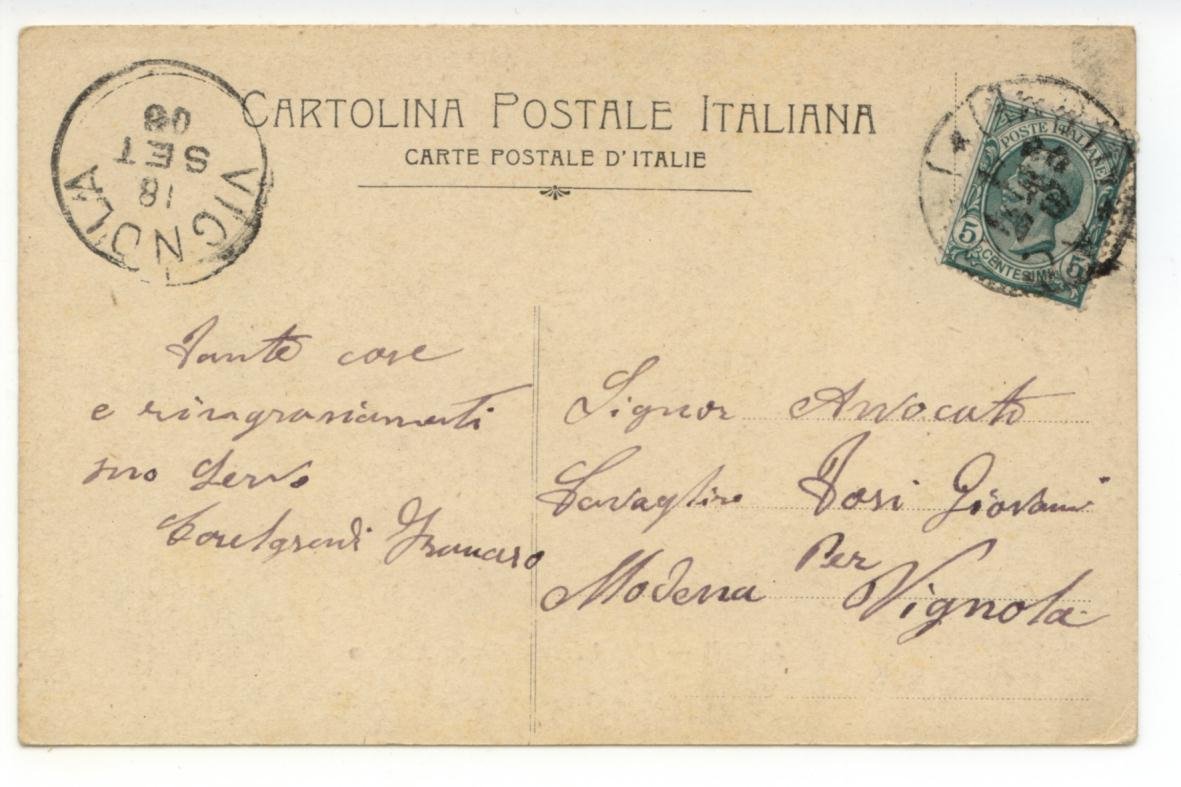 CARTOLINA POSTALE ITALIANA
CARTE POSTALE D'ITALIE
VIGNOLA
18
SET
08
POSTE ITALIANE
5 CENTESIMI 5
Tante cose
e ringraziamenti
suo Servo
Francesco
Signor Avvocato
Tosi Giovani
Modena Per Vignola